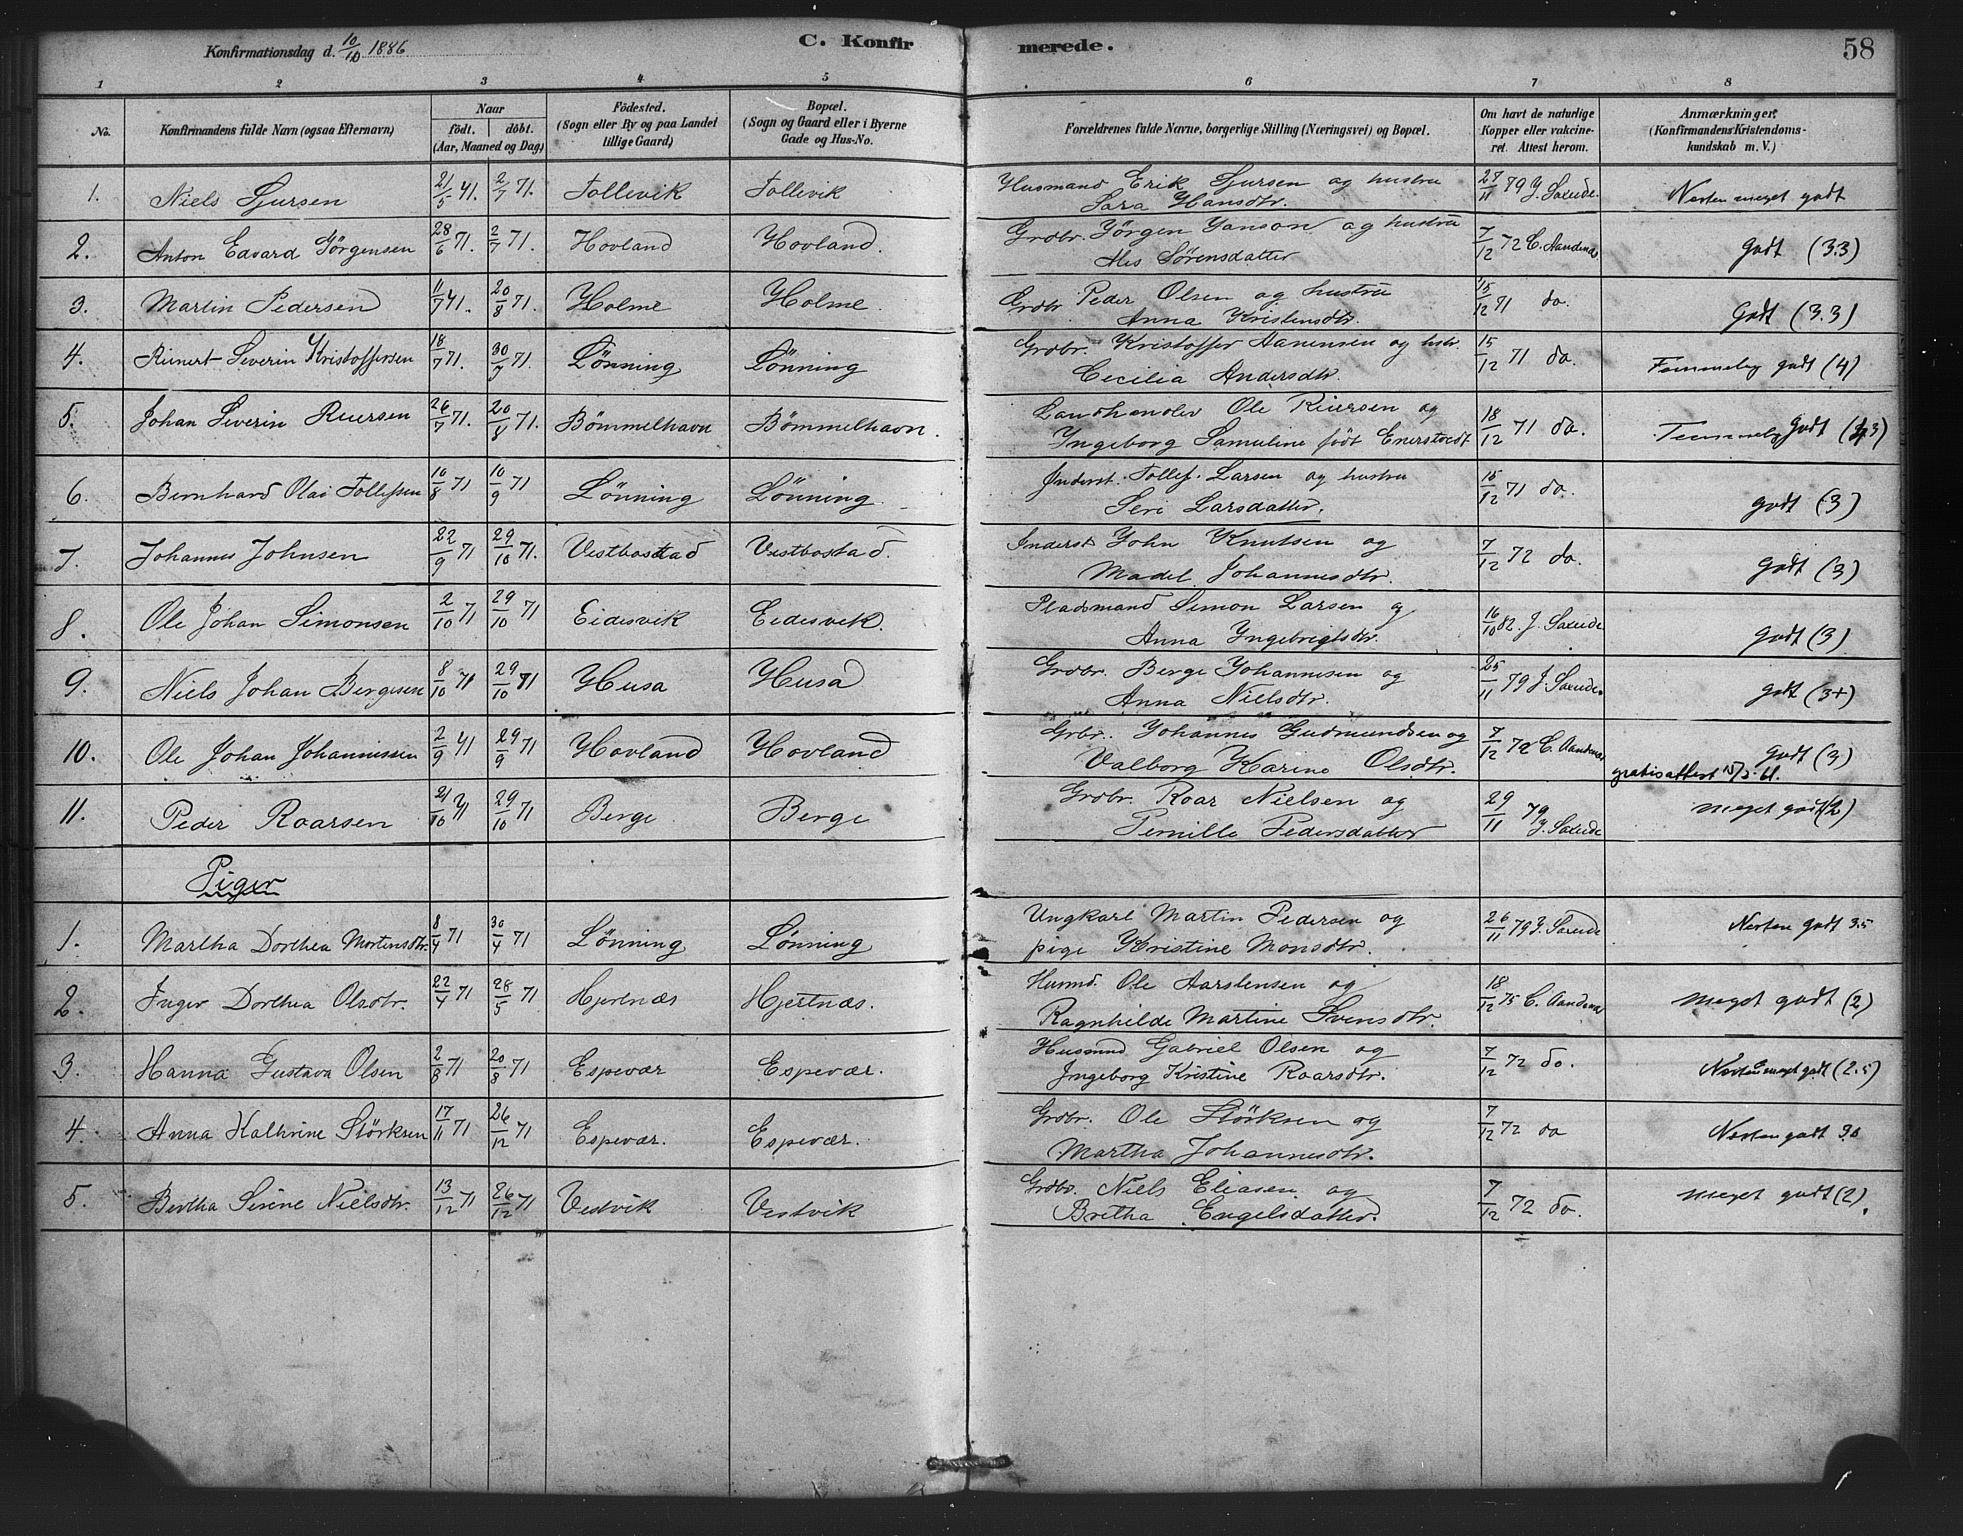 Konfirmationsdag d. 10/10 1886
C. Konfirmerede.
58
1 2 3 4 5 6 7 8
No.
Konfirmandens fulde Navn (ogsaa Efternavn)
Naar
födt. döbt.
(Aar, Maaned og Dag)
Födested.
(Sogn eller By og paa Landet
tillige Gaard)
Bopæl.
(Sogn og Gaard eller i Byerne
Gade og Hus-No.
Forældrenes fulde Navne, borgerlige Stilling (Næringsvei) og Bopæl.
Om havt de naturlige
Kopper eller vakcine-
ret. Attest herom.
Anmærkninger.
(Konfirmandens Kristendoms-
kundskab m. V.)
1. Niels Sjursen 21/5 71. 2/7 71. Tollevik Tollevik Husmand Erik Sjursen og hustru
Sara Hansdtr. 27/11 79 Nesten meget godt
2. Anton Edvard Jörgensen 28/6 71. 2/7 71. Hovland Hovland. Grdbr. Jörgen Janson og hustru
Sørensdatter 7/12 72 godt (3.3)
3. Martin Pedersen 11/7 71. 20/8 71. Holme Holme. Grdbr. Peder Olsen og hustru
Anna Kristensdtr. 15/12 71 do. Godt (3.3)
4. Reinert Severin Kristoffersen 18/7 71. 30/7 71. Lönning Lönning Grdbr. Kristoffer Aanensen og hstr.
Cecilia Andersdtr. 15/12 71 do. Temmelig godt (4)
5. Johan Severin Reiersen 26/7 71. 20/8 71. Bömmelhavn Bömmelhavn. Landhandler Ole Reiersen og
Ingeborg Samuline födt Enerstvedt 18/12 71 do. Temmelig Godt
6. Bernhard Olai Tollefsen 10/8 71 10/9 71 Lönning Lönning. Inderst. Tollef. Larsen og hustru
Seri Larsdatter. 15/12 71 do. godt (3)
7. Johannes Johnsen 22/9 71 29/10 71. Vestbostad Vestbostad. Inderst John Knutsen og
Madel Johannesdtr. 7/12 72 do. godt (3)
8. Ole Johan Simonsen 2/10 71 29/10 71 Eidesvik Eidesvik. Pladsmand Simon Larsen og
Anna Ingebrigtsdtr. 16/10 82. godt (3)
9. Niels Johan Bergesen 8/10 71 29/10 71 Husa Husa Grdbr. Berge Johannesen og
Anna Nielsdtr. 25/11 79 godt (3+)
10. Ole Johan Johannessen 2/9 71 29/9 71 Hovland Hovland Grbr. Johannes Gudmundsen og
Valborg Karine Olsdtr. 7/12 72 godt (3)
gratisattest
11. Peder Roarsen 21/10 71 29/10 71 Berge Berge Grdbr. Roar Nielsen og
Pernille Pedersdatter 29/11 79 meget godt (2)
Piger
1. Martha Dorthea Mortensdtr. 8/4 71 30/4 71 Lönning Lönning Ungkarl Martin Pedersen og
pige Kristine Monsdtr. 26/11 79 Nesten godt 3.5
2. Inger Dorthea Olsdtr. 22/4 71 28/5 71 Hjertnæs Hjertnæs. Husmd. Ole Aarstensen og
Ragnhilde Martine Svensdtr. 18/12 75 meget godt (2)
3. Hanna Gustava Olsen 2/8 71 20/8 71 Espevær Espevær. Husmnd Gabriel Olsen og
Ingeborg Kristine Roarsdtr. 7/12 72 do. Nesten meget godt (2.5)
4. Anna Kathrine Störksen 17/11 71 26/12 71 Espevær. Espevær. Grdbr. Ole Störksen og
Martha Johannesdtr. 7/12 72 do Nesten godt
5. Bertha Serine Nielsdtr. 13/12 71 26/12 71 Vestvik Vestvik Grdbr. Niels Eliasen og
Bretha Engelsdatter. 7/12 72 do. meget godt (2).